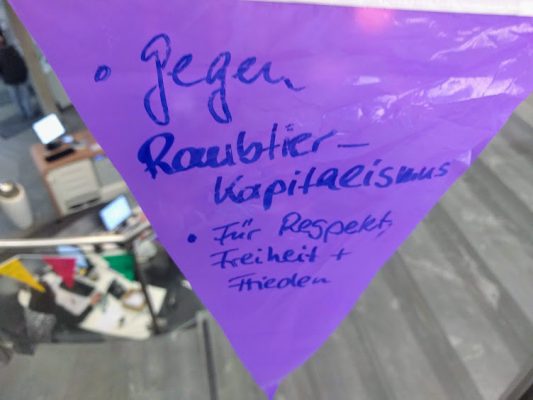 • Gegen
Raubtier-
Kapitalismus
• Für Respekt,
Freiheit +
Frieden